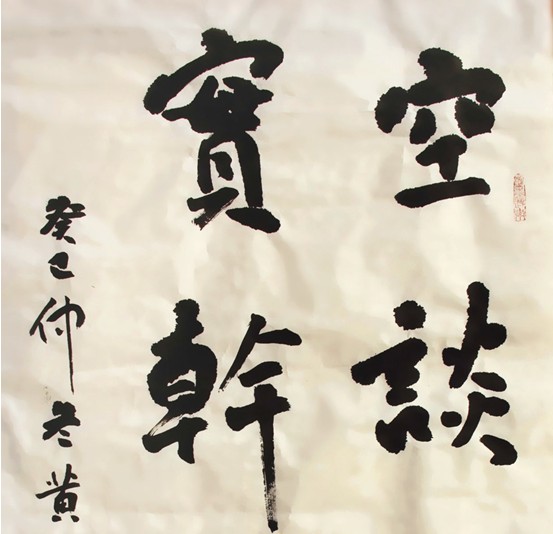 空談
實幹
癸巳仲冬黄